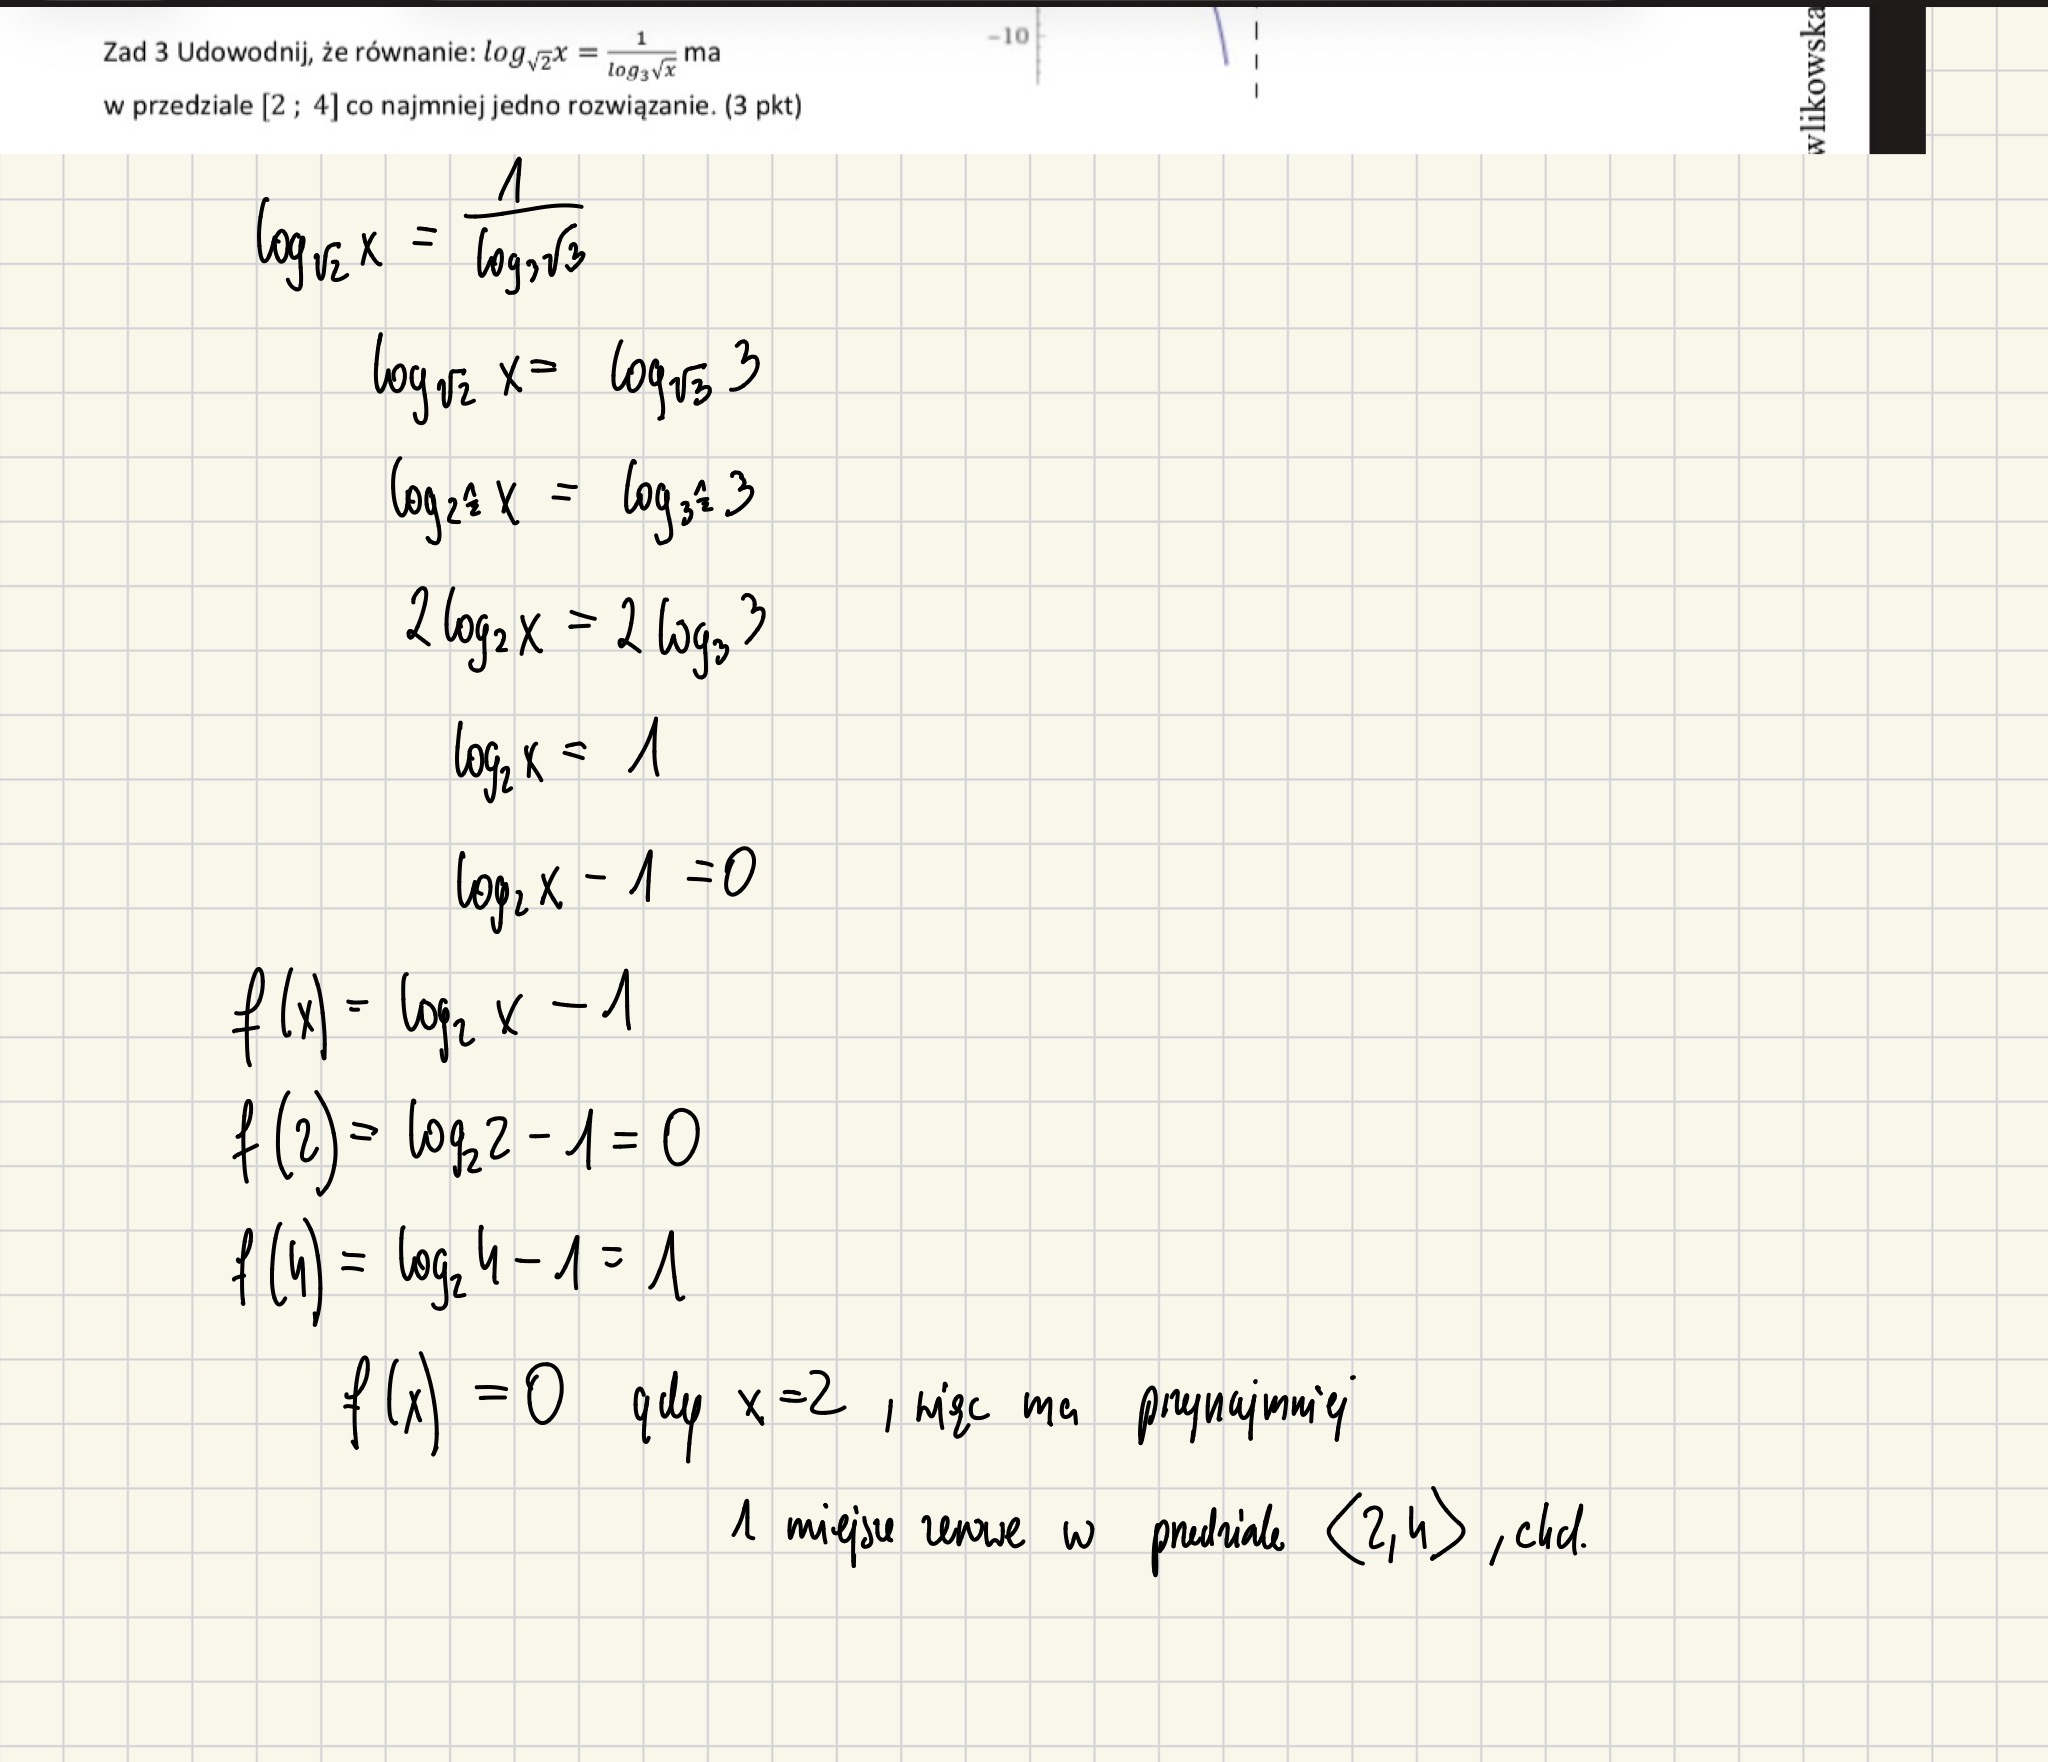 Zad 3 Udowodnij, że równanie: log_√2 x = 1/(log_3 √x) ma
w przedziale [2 ; 4] co najmniej jedno rozwiązanie. (3 pkt)
-10
wlikowska
log_√2 x = 1/(log_3 √3)
log_√2 x = log_√3 3
log_2^(1/2) x = log_3^(1/2) 3
2 log_2 x = 2 log_3 3
log_2 x = 1
log_2 x - 1 = 0
f(x) = log_2 x - 1
f(2) = log_2 2 - 1 = 0
f(4) = log_2 4 - 1 = 1
f(x) = 0 gdy x = 2 , więc ma przynajmniej
1 miejsce zerowe w przedziale ⟨2,4⟩ , ckd.